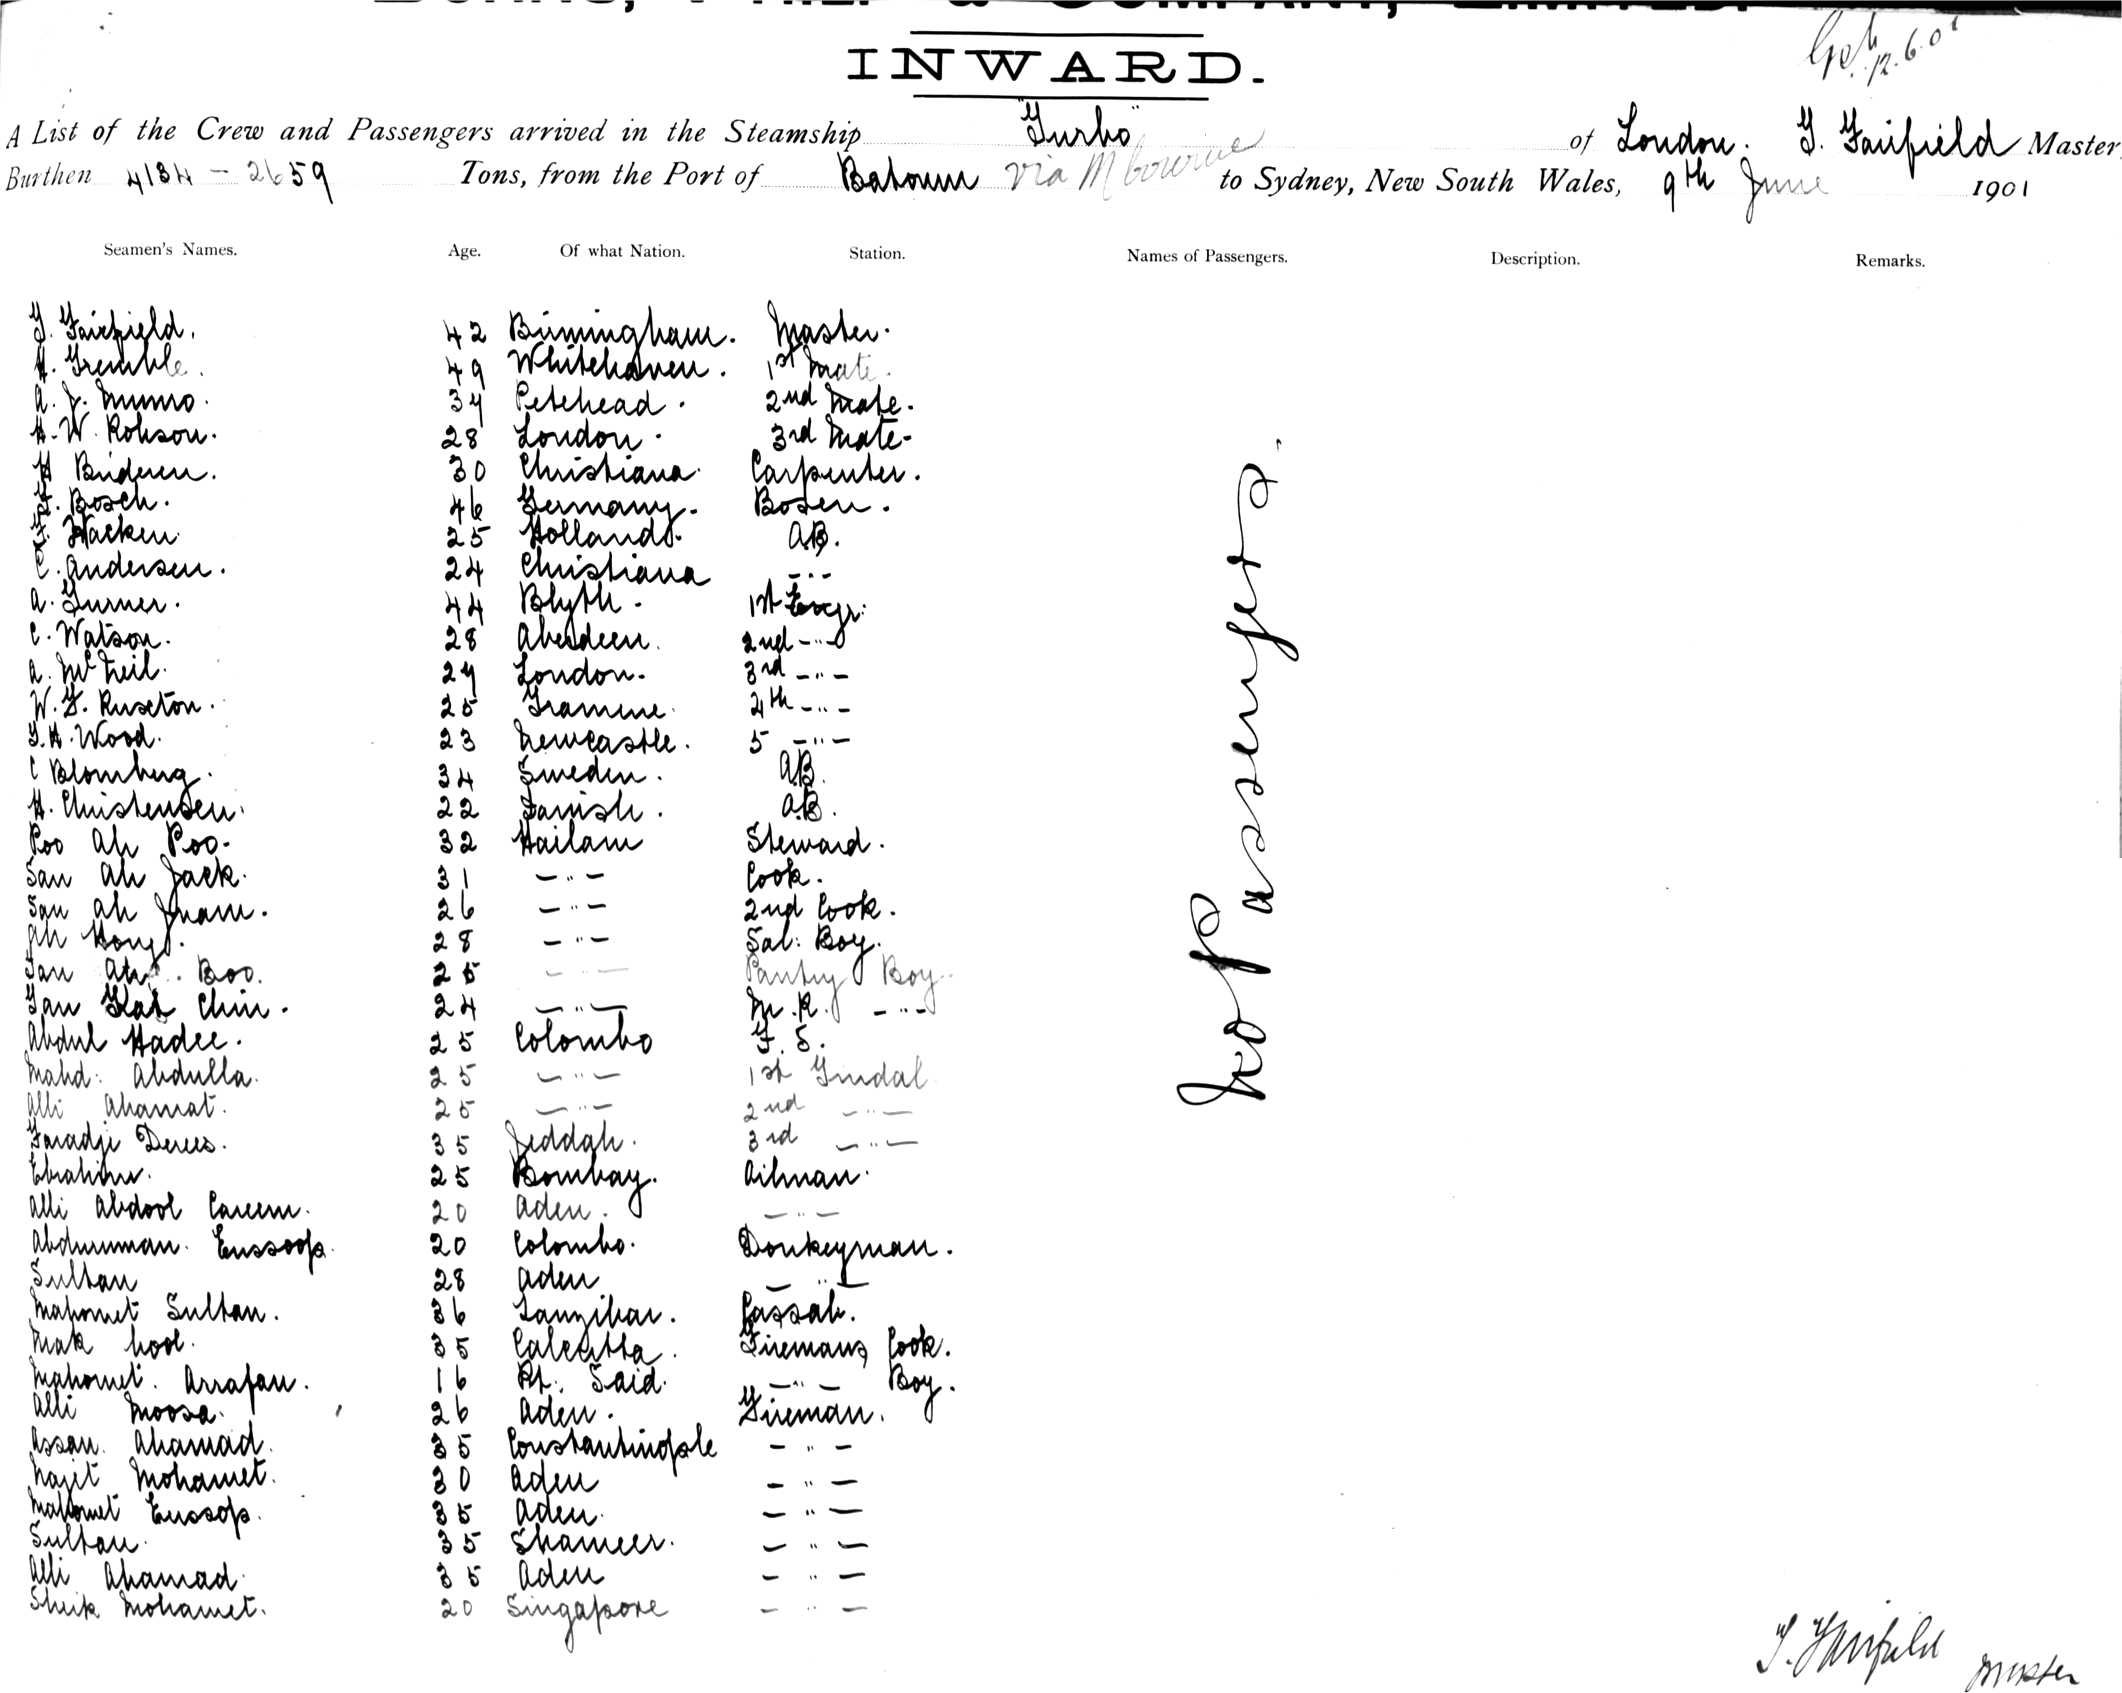 BURNS, PHILP & COMPANY, LIMITED.
INWARD.
12.6.01
A List of the Crew and Passengers arrived in the Steamship "Turbo" of London. T. Fairfield Master,
Burthen 4134 - 2659 Tons, from the Port of Batoum via Mbourne to Sydney, New South Wales, 9th June 1901
Seamen's Names. Age. Of what Nation. Station. Names of Passengers. Description. Remarks.
T. Fairfield. 42 Birmingham. Master.
H. Tremble. 49 Whitehaven. 1st Mate.
A. J. Munro. 34 Petehead. 2nd Mate.
H. W. Robson. 28 London. 3rd Mate.
H 30 Christiana Carpenter.
Bosch. 46 Germany. Bosen.
25 Holland. A.B.
C. Andersen. 24 Christiana -"-
A. Turner. 44 Blyth. 1st Engr.
C. Watson. 28 Aberdeen. 2nd -"-
A. McNeil. 29 London. 3rd -"-
W. F. Ruxton. 25 4th -"-
T. H. Wood. 23 Newcastle. 5 -"-
C Blomberg. 34 Sweden. A.B.
H. Christensen. 22 Danish. A.B.
Poo Ah Poo. 32 Hailam Steward.
San Ah Jack. 31 -"- Cook.
San Ah Juam. 26 -"- 2nd Cook.
Ah Hong. 28 -"- Sal: Boy.
Tan Ah Boo. 25 -"- Pantry Boy.
Tan Kat Chin. 24 -"- M. R. -"-
Abdul Hadee. 25 Colombo F. S.
Mahd: Abdulla. 25 -"- 1st Tindal
Alli Ahamat. 25 -"- 2nd -"-
Faradji 35 Jeddah. 3rd -"-
Ebrahim. 25 Bombay. Oilman.
Alli Abdool Careem. 20 Aden. -"-
Abduruman Eussoop. 20 Colombo. Donkeyman.
Sultan 28 Aden -"-
Mahomet Sultan. 36 Zanzibar. Cassab.
Mak hool. 35 Calcutta. Firemans Cook.
Mahomet. Arrafan. 16 Pt: Said. -"- Boy.
Alli Moosa. 26 Aden. Fireman.
Assan Ahamad. 35 Constantinople -"-
Najit Mohamet. 30 Aden -"-
Mahomet Eussop. 35 Aden. -"-
Sultan. 35 Shameer. -"-
Alli Ahamad. 35 Aden -"-
Sheik Mohamet. 20 Singapore -"-
No Passengers.
T. Fairfield Master